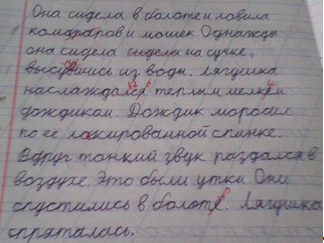 Она сидела в болоте и ловила
комаров и мошек. Однажды
она сидела сидела на сучке,
высунувшись из воды. Лягушка
наслаждался теплым мелким
дождиком. Дождик моросил
по её лакированной спинке.
Вдруг тонкий звук раздался в
воздухе. Это были утки. Они
спустились в болото. Лягушка
спряталась.